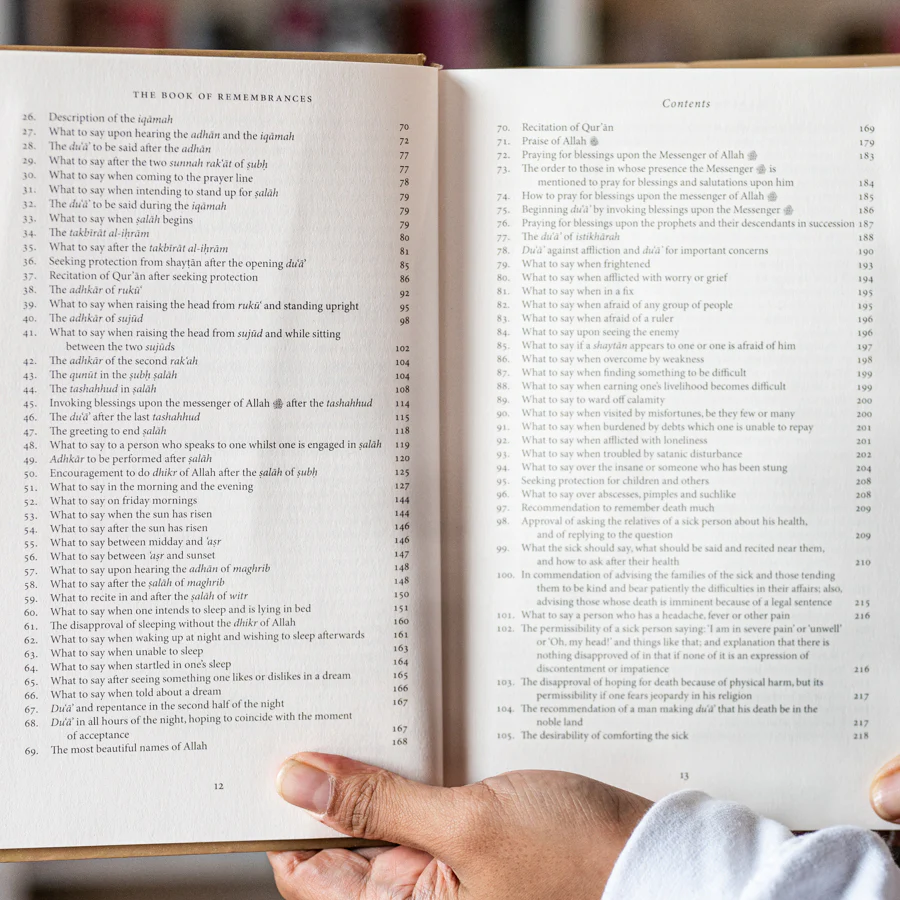 THE BOOK OF REMEMBRANCES
26. Description of the iqāmah 70
27. What to say upon hearing the adhān and the iqāmah 72
28. The du'ā' to be said after the adhān 77
29. What to say after the two sunnah rak'āt of ṣubḥ 77
30. What to say when coming to the prayer line 78
31. What to say when intending to stand up for ṣalāh 79
32. The du'ā' to be said during the iqāmah 79
33. What to say when ṣalāh begins 79
34. The takbīrāt al-iḥrām 80
35. What to say after the takbīrāt al-iḥrām 81
36. Seeking protection from shayṭān after the opening du'ā' 85
37. Recitation of Qur'ān after seeking protection 86
38. The adhkār of rukū' 92
39. What to say when raising the head from rukū' and standing upright 95
40. The adhkār of sujūd 98
41. What to say when raising the head from sujūd and while sitting
between the two sujūds 102
42. The adhkār of the second rak'ah 104
43. The qunūt in the ṣubḥ ṣalāh 104
44. The tashahhud in ṣalāh 108
45. Invoking blessings upon the messenger of Allah ﷺ after the tashahhud 114
46. The du'ā' after the last tashahhud 115
47. The greeting to end ṣalāh 118
48. What to say to a person who speaks to one whilst one is engaged in ṣalāh 119
49. Adhkār to be performed after ṣalāh 120
50. Encouragement to do dhikr of Allah after the ṣalāh of ṣubḥ 125
51. What to say in the morning and the evening 127
52. What to say on friday mornings 144
53. What to say when the sun has risen 144
54. What to say after the sun has risen 146
55. What to say between midday and 'aṣr 146
56. What to say between 'aṣr and sunset 147
57. What to say upon hearing the adhān of maghrib 148
58. What to say after the ṣalāh of maghrib 148
59. What to recite in and after the ṣalāh of witr 150
60. What to say when one intends to sleep and is lying in bed 151
61. The disapproval of sleeping without the dhikr of Allah 160
62. What to say when waking up at night and wishing to sleep afterwards 161
63. What to say when unable to sleep 163
64. What to say when startled in one's sleep 164
65. What to say after seeing something one likes or dislikes in a dream 165
66. What to say when told about a dream 166
67. Du'ā' and repentance in the second half of the night 167
68. Du'ā' in all hours of the night, hoping to coincide with the moment
of acceptance 167
69. The most beautiful names of Allah 168
12
Contents
70. Recitation of Qur'ān 169
71. Praise of Allah ﷻ 179
72. Praying for blessings upon the Messenger of Allah ﷺ 183
73. The order to those in whose presence the Messenger ﷺ is
mentioned to pray for blessings and salutations upon him 184
74. How to pray for blessings upon the messenger of Allah ﷺ 185
75. Beginning du'ā' by invoking blessings upon the Messenger ﷺ 186
76. Praying for blessings upon the prophets and their descendants in succession 187
77. The du'ā' of istikhārah 188
78. Du'ā' against affliction and du'ā' for important concerns 190
79. What to say when frightened 193
80. What to say when afflicted with worry or grief 194
81. What to say when in a fix 195
82. What to say when afraid of any group of people 195
83. What to say when afraid of a ruler 196
84. What to say upon seeing the enemy 196
85. What to say if a shayṭān appears to one or one is afraid of him 197
86. What to say when overcome by weakness 198
87. What to say when finding something to be difficult 199
88. What to say when earning one's livelihood becomes difficult 199
89. What to say to ward off calamity 200
90. What to say when visited by misfortunes, be they few or many 200
91. What to say when burdened by debts which one is unable to repay 201
92. What to say when afflicted with loneliness 201
93. What to say when troubled by satanic disturbance 202
94. What to say over the insane or someone who has been stung 204
95. Seeking protection for children and others 208
96. What to say over abscesses, pimples and suchlike 208
97. Recommendation to remember death much 209
98. Approval of asking the relatives of a sick person about his health,
and of replying to the question 209
99. What the sick should say, what should be said and recited near them,
and how to ask after their health 210
100. In commendation of advising the families of the sick and those tending
them to be kind and bear patiently the difficulties in their affairs; also,
advising those whose death is imminent because of a legal sentence 215
101. What to say a person who has a headache, fever or other pain 216
102. The permissibility of a sick person saying: 'I am in severe pain' or 'unwell'
or 'Oh, my head!' and things like that; and explanation that there is
nothing disapproved of in that if none of it is an expression of
discontentment or impatience 216
103. The disapproval of hoping for death because of physical harm, but its
permissibility if one fears jeopardy in his religion 217
104. The recommendation of a man making du'ā' that his death be in the
noble land 217
105. The desirability of comforting the sick 218
13